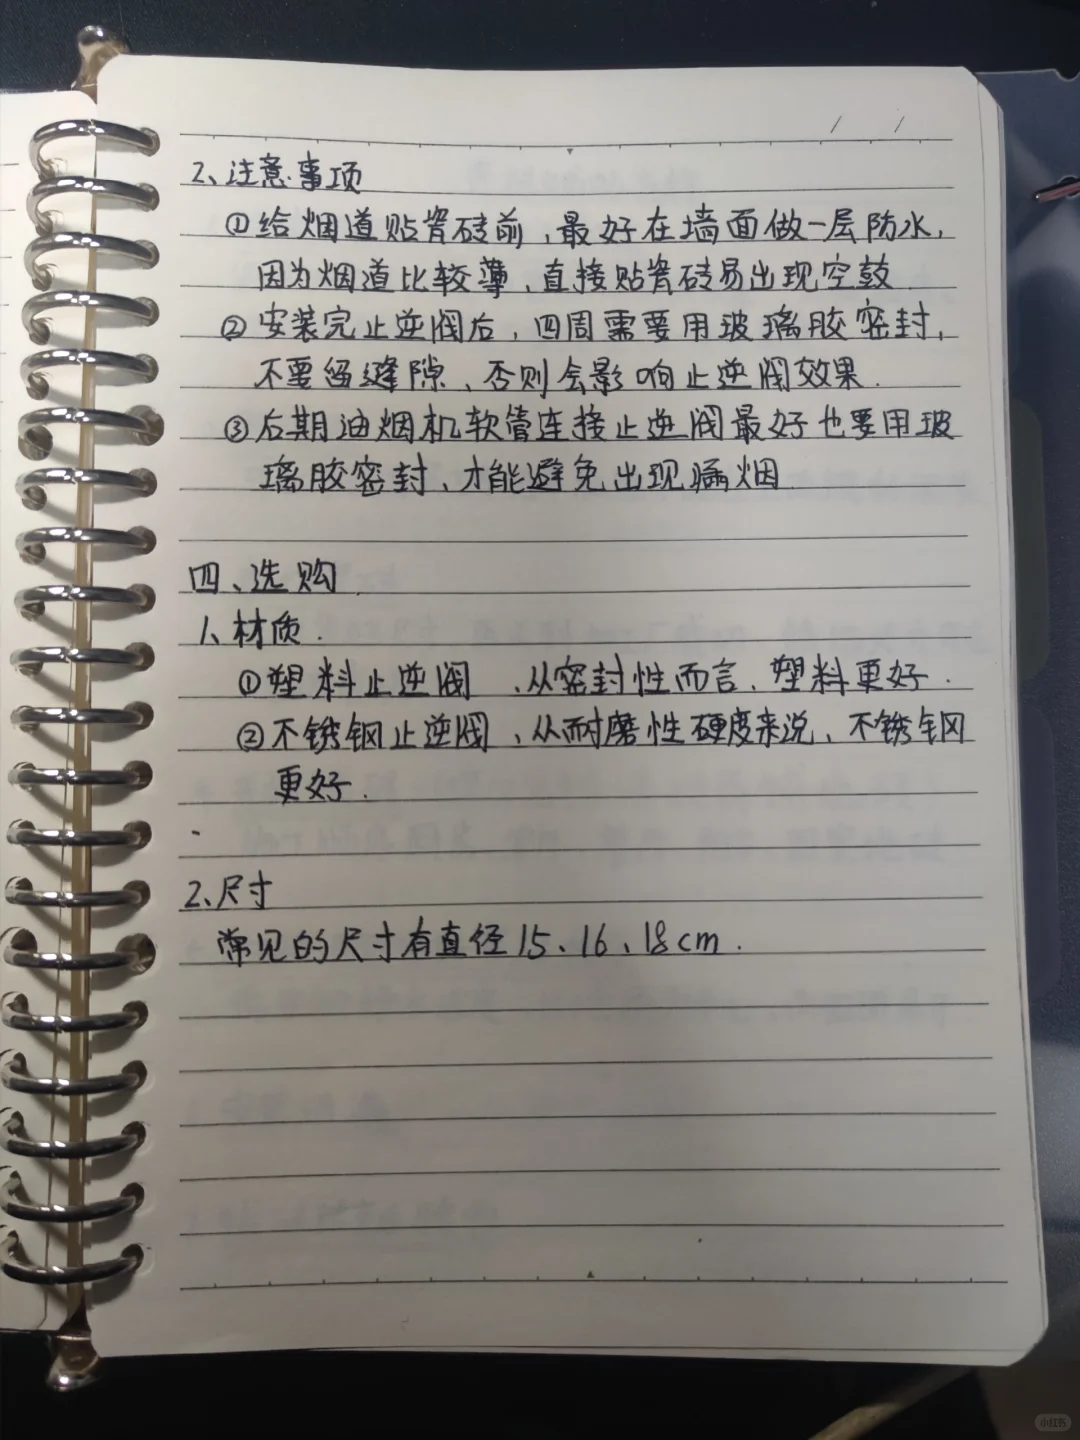 2、注意事项
①给烟道贴瓷砖前，最好在墙面做一层防水，
因为烟道比较薄，直接贴瓷砖易出现空鼓.
②安装完止逆阀后，四周需要用玻璃胶密封，
不要留缝隙、否则会影响止逆阀效果.
③后期油烟机软管连接止逆阀最好也要用玻
璃胶密封、才能避免出现漏烟.
四、选购
1、材质.
①塑料止逆阀 、从密封性而言、塑料更好.
②不锈钢止逆阀、从耐磨性硬度来说、不锈钢
更好.
2、尺寸
常见的尺寸有直径15、16、18cm.
小红书